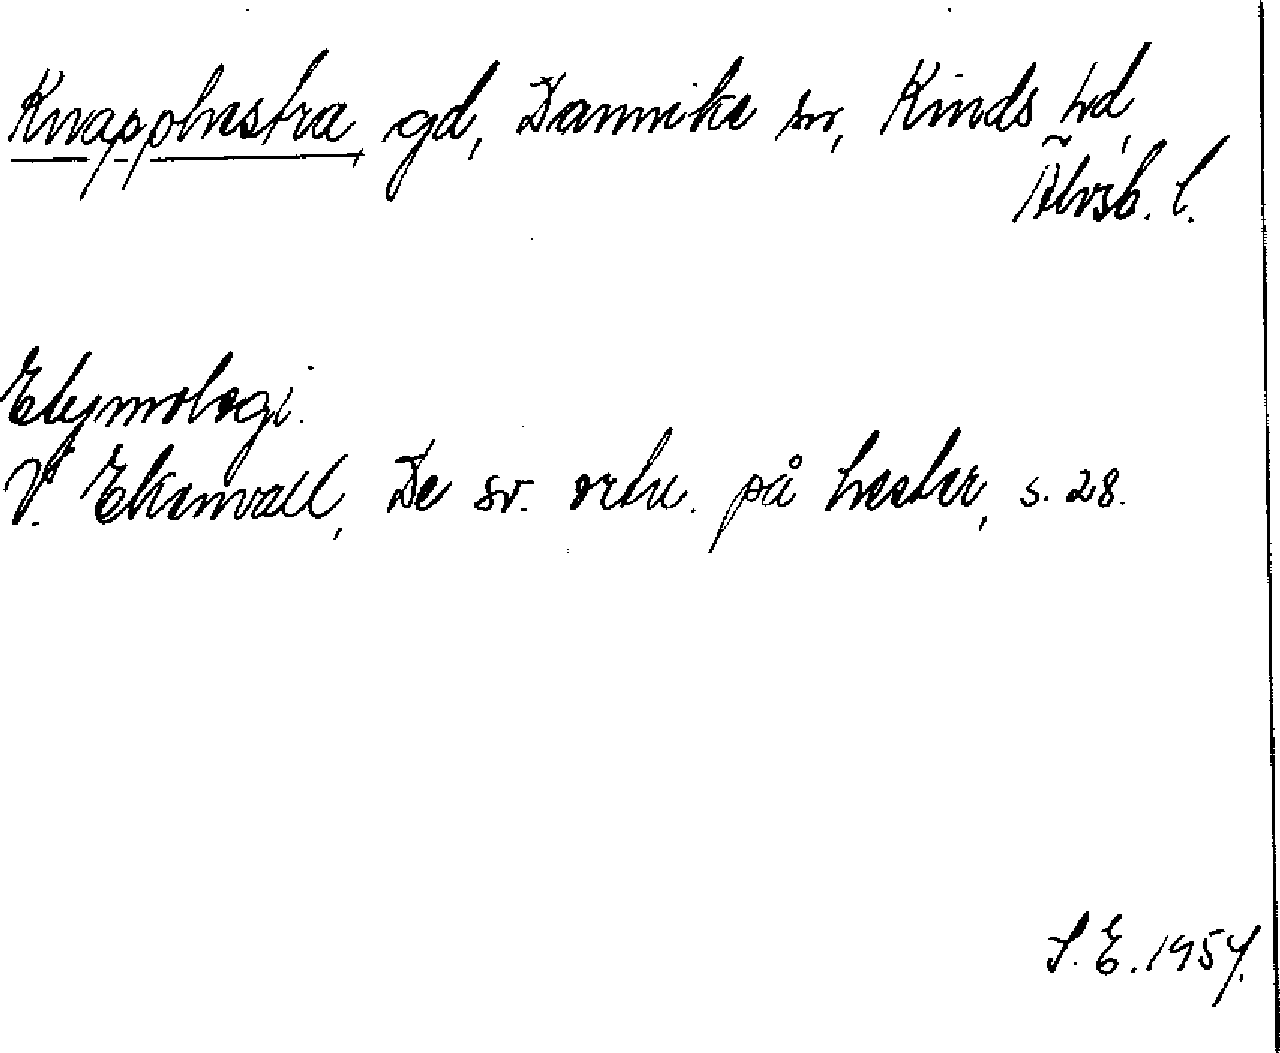 Knapphestra, gd, Dannike sn, Kinds hd,
Älvsb. l.
Etymologi.
V. Ekenvall, De sv. ortn. på hester, s. 28.
S. E. 1957.